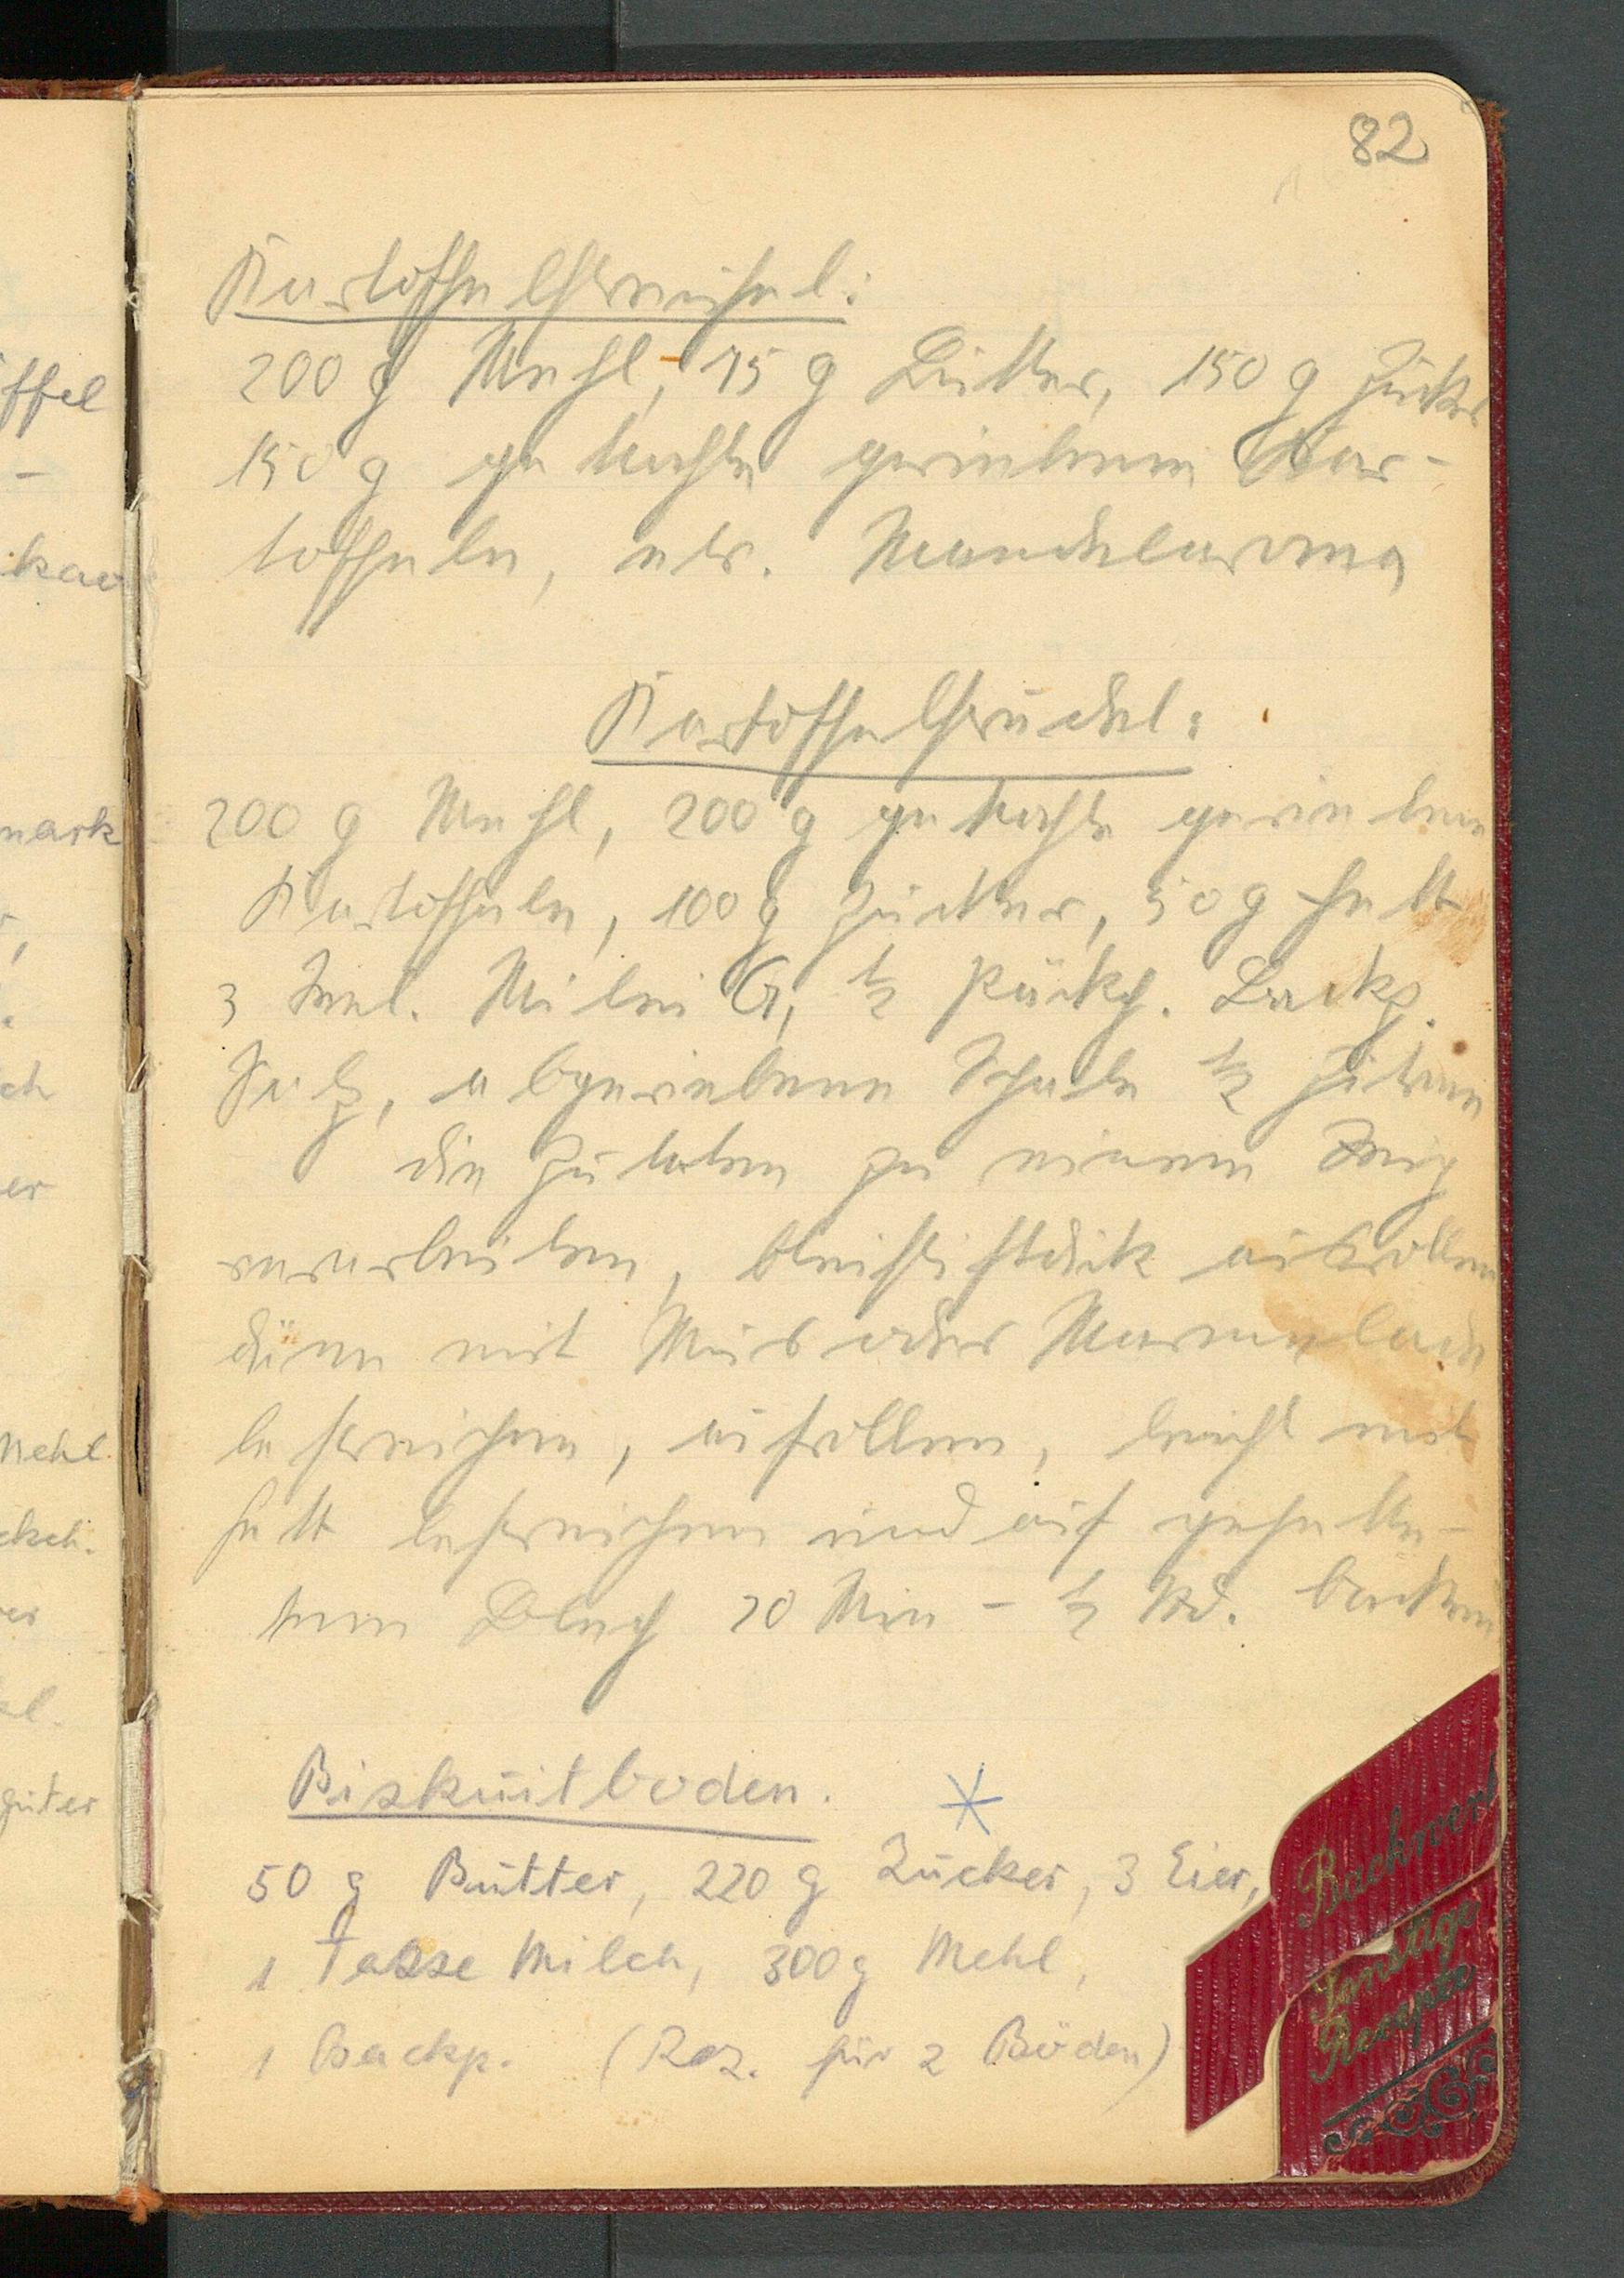 82
Kartoffelstreusel:
200 g Mehl, 75 g Butter, 150 g Zucker
150 g gekochte geriebene Kar-
toffeln, etw. Mandelaroma
Kartoffelstrudel:
200 g Mehl, 200 g gekochte geriebene
Kartoffeln, 100 g Zucker, 50 g Fett
3 Teel. Milei G, ½ Päckch. Backp.
Salz, abgeriebene Schale ½ Zitrone
die Zutaten zu einem Teig
verarbeiten, bleistiftdick ausrollen
dünn mit Mus oder Marmelade
bestreichen, aufrollen, leicht mit
Fett bestreichen und auf gefette-
tem Blech 20 Min - ½ Std. backen
Biskuitboden.
50 g Butter, 220 g Zucker, 3 Eier,
1 Tasse Milch, 300 g Mehl,
1 Backp. (Rez. für 2 Böden)
Backwerk
Sonstige
Rezepte
ffel
-
kao
mark
ch
er
Mehl
ckch.
er
l.
guter